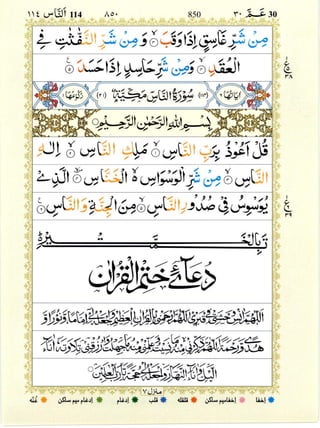 ١١٤ اَلنَّاس 114 ٨٥٠ 850 ٣٠ عَـمَّ 30
مِنْ شَرِّ غَاسِقٍ اِذَا وَقَبَ ۙ وَ مِنْ شَرِّ النَّفّٰثٰتِ فِي
الْعُقَدِ ۙ وَ مِنْ شَرِّ حَاسِدٍ اِذَا حَسَدَ
سُوْرَةُ النَّاسِ مَكِّيَّةٌ
بِسْمِ اللّٰهِ الرَّحْمٰنِ الرَّحِيْمِ
قُلْ اَعُوْذُ بِرَبِّ النَّاسِ ۙ مَلِكِ النَّاسِ ۙ اِلٰهِ
النَّاسِ ۙ مِنْ شَرِّ الْوَسْوَاسِ ۙ الْخَنَّاسِ ۙ الَّذِيْ
يُوَسْوِسُ فِيْ صُدُوْرِ النَّاسِ ۙ مِنَ الْجِنَّةِ وَ النَّاسِ
دُعَآئے خَتْمِ الْقُرْاٰنِ
اَللّٰهُمَّ اٰنِسْ وَحْشَتِيْ فِيْ قَبْرِيْ اَللّٰهُمَّ ارْحَمْنِيْ بِالْقُرْاٰنِ الْعَظِيْمِ وَاجْعَلْهُ لِيْ اِمَامًا وَّ نُوْرًا وَّ
هُدًى وَّ رَحْمَةً اَللّٰهُمَّ ذَكِّرْنِيْ مِنْهُ مَا نَسِيْتُ وَعَلِّمْنِيْ مِنْهُ مَا جَهِلْتُ وَارْزُقْنِيْ تِلَاوَتَهٗ اٰنَآءَ
الَّيْلِ وَاٰنَآءَ النَّهَارِ وَاجْعَلْهُ لِيْ حُجَّةً يَّا رَبَّ الْعٰلَمِيْنَ
منزل ٧
اخفا اخفا میم ساکن قلقله قلب ادغام ادغام میم ساکن غنّه